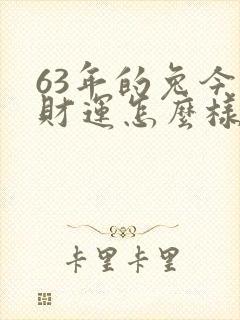 63年的兔今
財運怎麼樣
卡里卡里